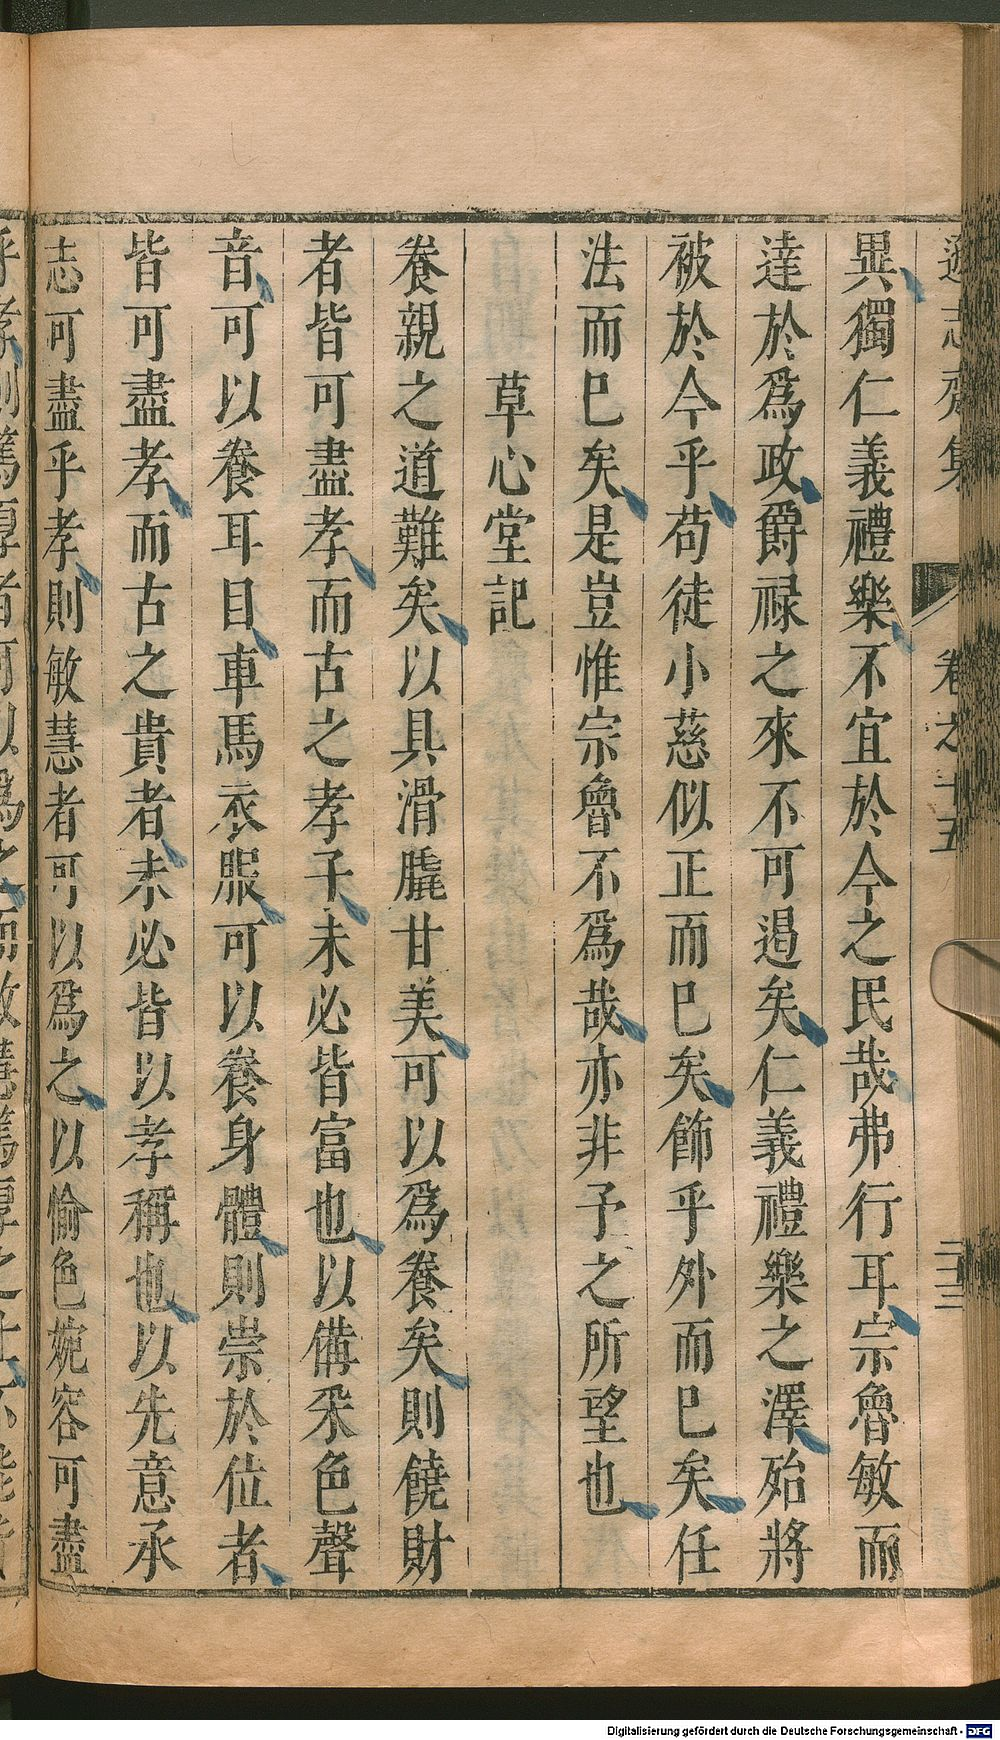 遜志齋集 卷之十五
異獨仁義禮樂不宜於今之民哉弗行耳宗魯敏而
達於爲政爵祿之來不可遏矣仁義禮樂之澤殆將
被於今乎苟徒小慈似正而已矣飾乎外而已矣任
法而已矣是豈惟宗魯不爲哉亦非予之所望也
草心堂記
養親之道難矣以具滑臑甘美可以爲養矣則饒財
者皆可盡孝而古之孝子未必皆富也以備采色聲
音可以養耳目車馬衣服可以養身體則崇於位者
皆可盡孝而古之貴者未必皆以孝稱也以先意承
志可盡乎孝則敏慧者可以爲之以愉色婉容可盡
乎孝則篤厚者可以爲之
Digitalisierung gefördert durch die Deutsche Forschungsgemeinschaft - DFG